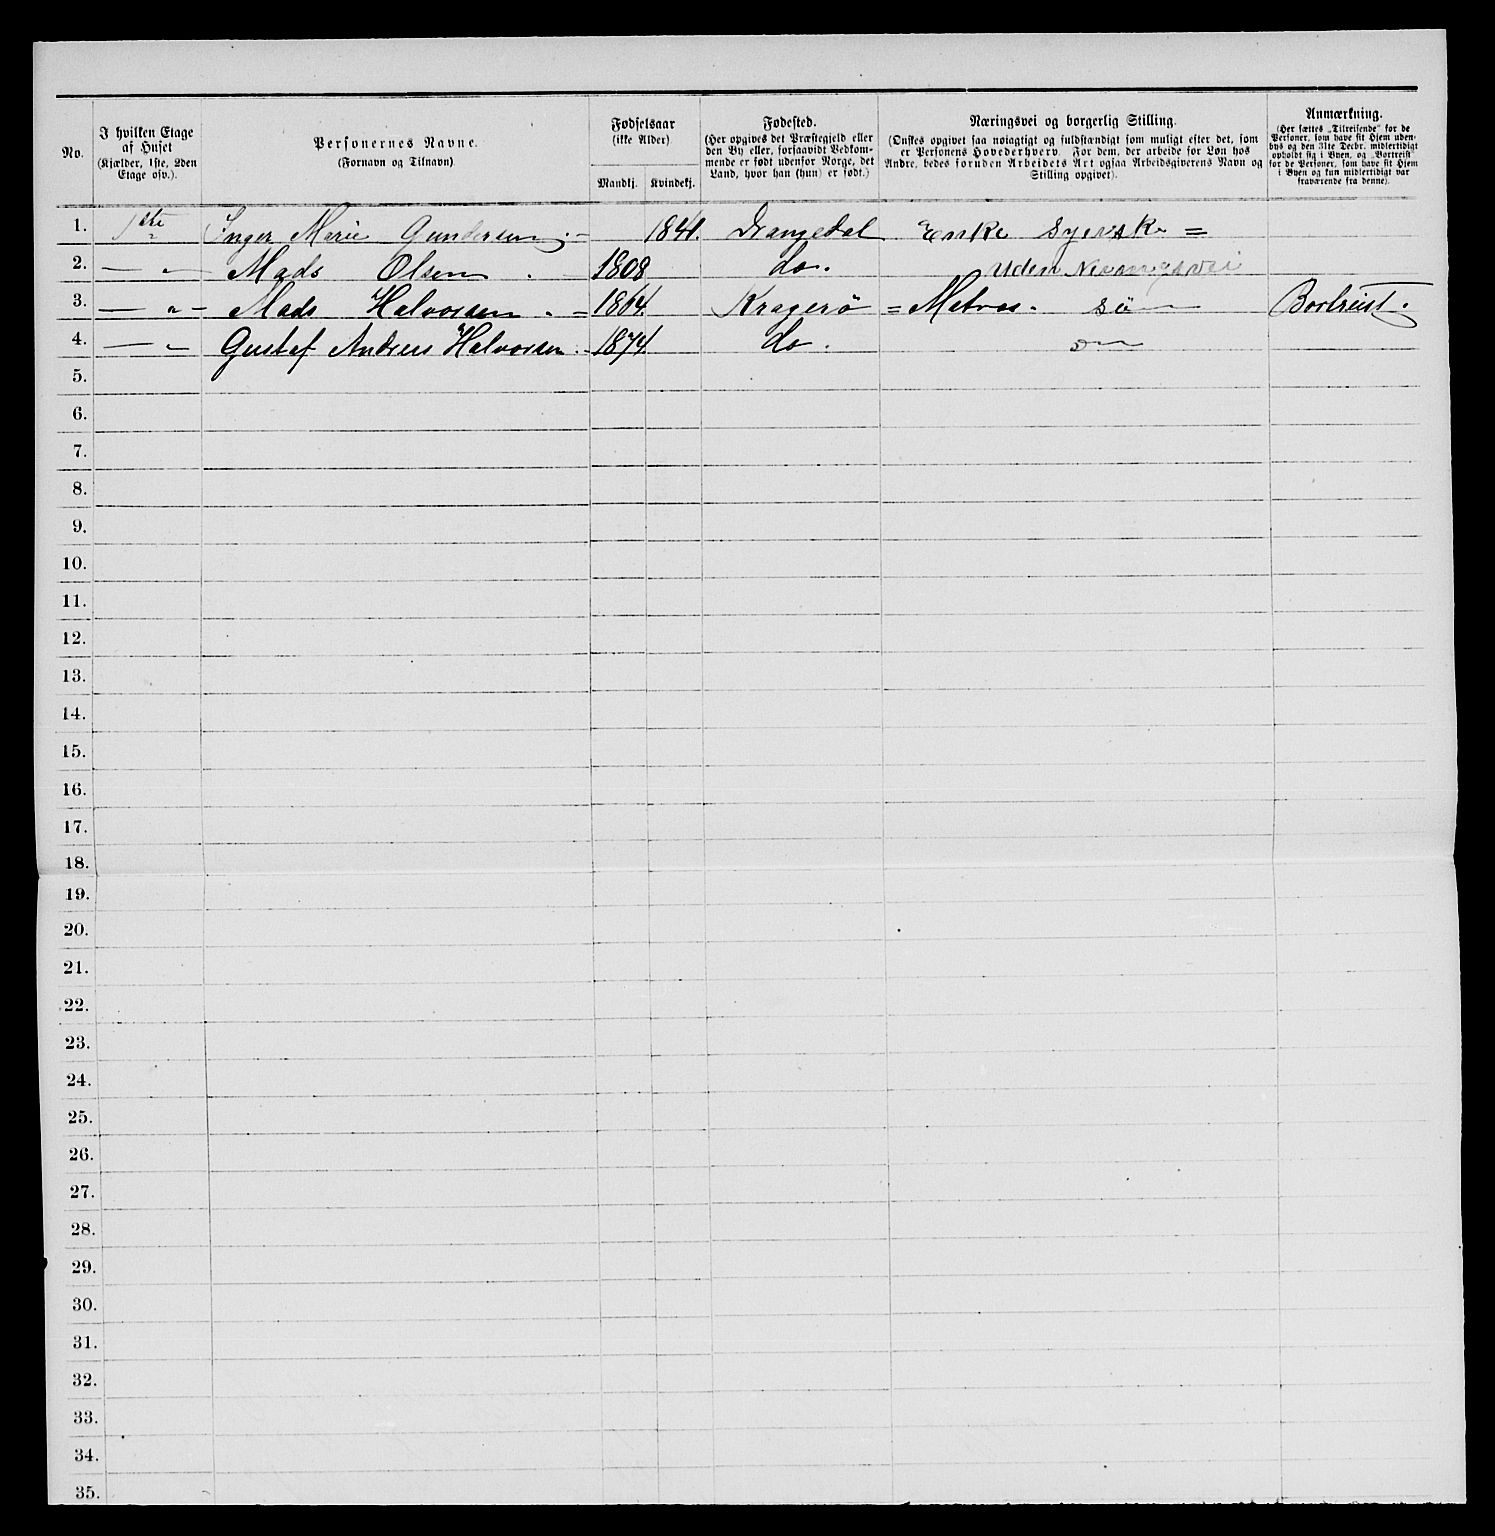 No.
I hvilken Etage af Huset
(Kjælder, 1ste, 2den Etage osv.).
Personernes Navne.
(Fornavn og Tilnavn)
Fødselsaar
(ikke Alder)
Mandkj. Kvindekj.
Fødested.
(Her opgives det Præstegjeld eller
den By eller, forsaavidt Vedkom-
mende er født udenfor Norge, det
Land, hvor han (hun) er født.)
Næringsvei og borgerlig Stilling.
(Ønskes opgivet saa nøiagtigt og fuldstændigt som muligt efter det, som
er Personens Hovederhverv. For dem, der arbeide for Løn hos
Andre, bedes foruden Arbeidets Art ogsaa Arbeidsgiverens Navn og
Stilling opgivet).
Anmærkning.
(Her sættes „Tilreisende“ for de
Personer, som have sit Hjem uden-
bys og den 31te Decbr. midlertidigt
opholdt sig i Byen, og „Bortreist“
for de Personer, som have sit Hjem
i Byen og kun midlertidigt var
fraværende fra denne).
1. 1ste Inger Marie Gundersen 1841. Drangedal Enke Syerske =
2. — „ Mads Olsen . 1808 do. Uden Næringsvei
3. — „ — Mads Halvorsen . = 1864. Kragerö = Matros. Sö Bortreist.
4. — „ Gustaf Andreas Halvorsen . 1874. do.
5.
6.
7.
8.
9.
10.
11.
12.
13.
14.
15.
16.
17.
18.
19.
20.
21.
22.
23.
24.
25.
26.
27.
28.
29.
30.
31.
32.
33.
34.
35.